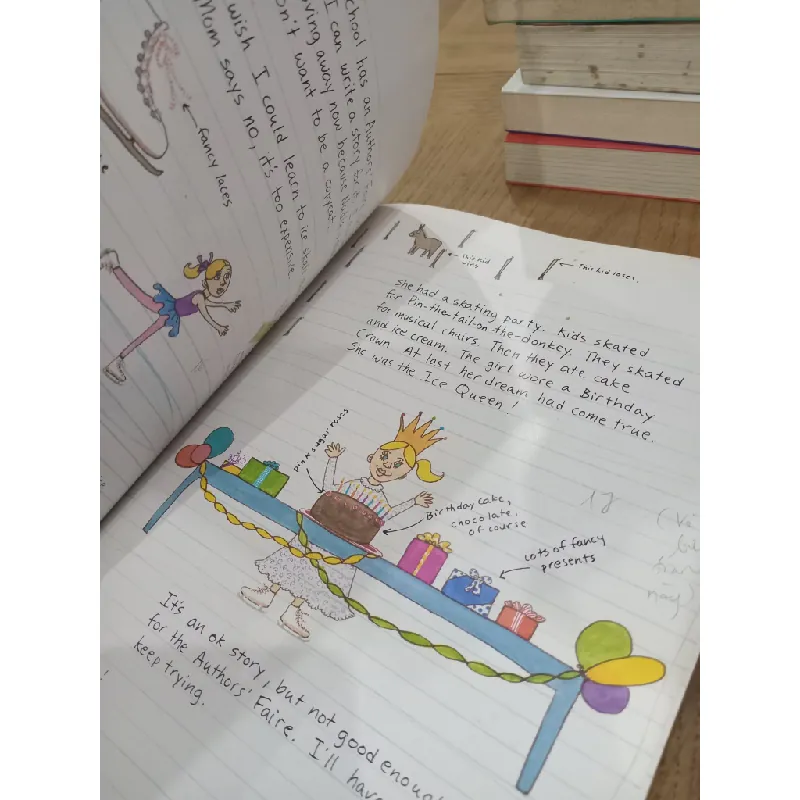 chool has an Authors'
I can write a story for it
ving away now because
on't want to be a copycat.
wish I could learn to ice skate
Mom says no, it's too expensive
fancy laces
this kid wins
This kid loses.
She had a skating party. Kids skated
for Pin-the-tail-on-the-donkey. They skated
for musical chairs. Then they ate cake
and ice cream. The girl wore a Birthday
Crown. At last her dream had come true.
She was the Ice Queen!
pink sugar roses
Birthday cake,
chocolate,
of course
Lots of fancy
presents
It's an ok story, but not good enough
for the Authors' Faire. I'll have
keep trying.